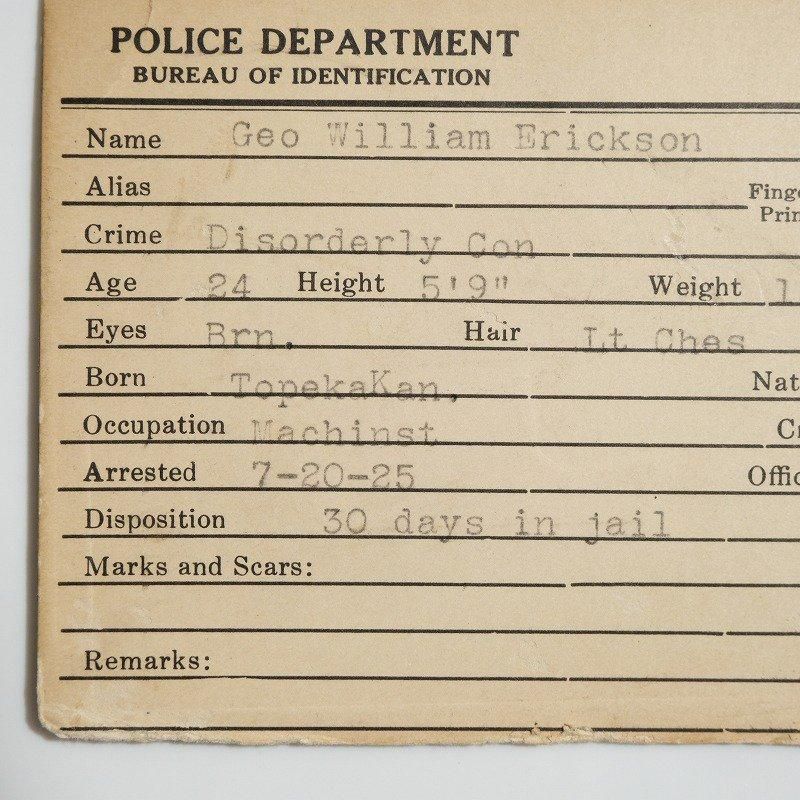 POLICE DEPARTMENT
BUREAU OF IDENTIFICATION
Name Geo William Erickson
Alias
Finge
Prin
Crime Disorderly Con
Age 24 Height 5'9" Weight 1
Eyes Brn. Hair Lt Ches
Born TopekaKan. Nat
Occupation Machinst C
Arrested 7-20-25 Offic
Disposition 30 days in jail
Marks and Scars:
Remarks: